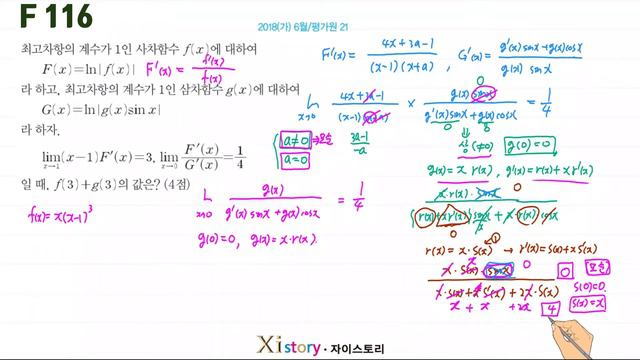 F 116
2018(가) 6월/평가원 21
최고차항의 계수가 1인 사차함수 f(x)에 대하여
F(x)=ln|f(x)| F'(x) = f'(x)/f(x)
라 하고, 최고차항의 계수가 1인 삼차함수 g(x)에 대하여
G(x)=ln|g(x)sin x|
라 하자.
lim x→1 (x−1)F'(x)=3, lim x→0 F'(x)/G'(x)=1/4
일 때, f(3)+g(3)의 값은? (4점)
f(x)= x(x-1)^3
F'(x)= 4x+3a-1/(x-1)(x+a) , G'(x)= g'(x)sinx+g(x)cosx/g(x) sinx
lim x→0 4x+3a-1/(x-1)(x+a) × g(x) sinx/g'(x)sinx+g(x)cosx = 1/4
0
0 0
a≠0 ⇒모순 3a-1/-a
a=0
상 (≠0) g(0)=0
lim x→0 g(x)/g'(x) sinx+g(x) cosx = 1/4
g(0)=0, g(x)= x·r(x)
g(x)= x r(x), g'(x)= r(x)+x r'(x)
x·r(x)·sinx 0
(r(x)+xr'(x)) sinx + x·r(x) cosx
r(x)= x·s(x) → r'(x)= s(x)+x s'(x)
x·s(x) sinx 0 0 모순
x·s(x)+x² s'(x) + 2x·s(x) s(0)=0
x + x + 2x 4 s(x)=x
Xistory · 자이스토리